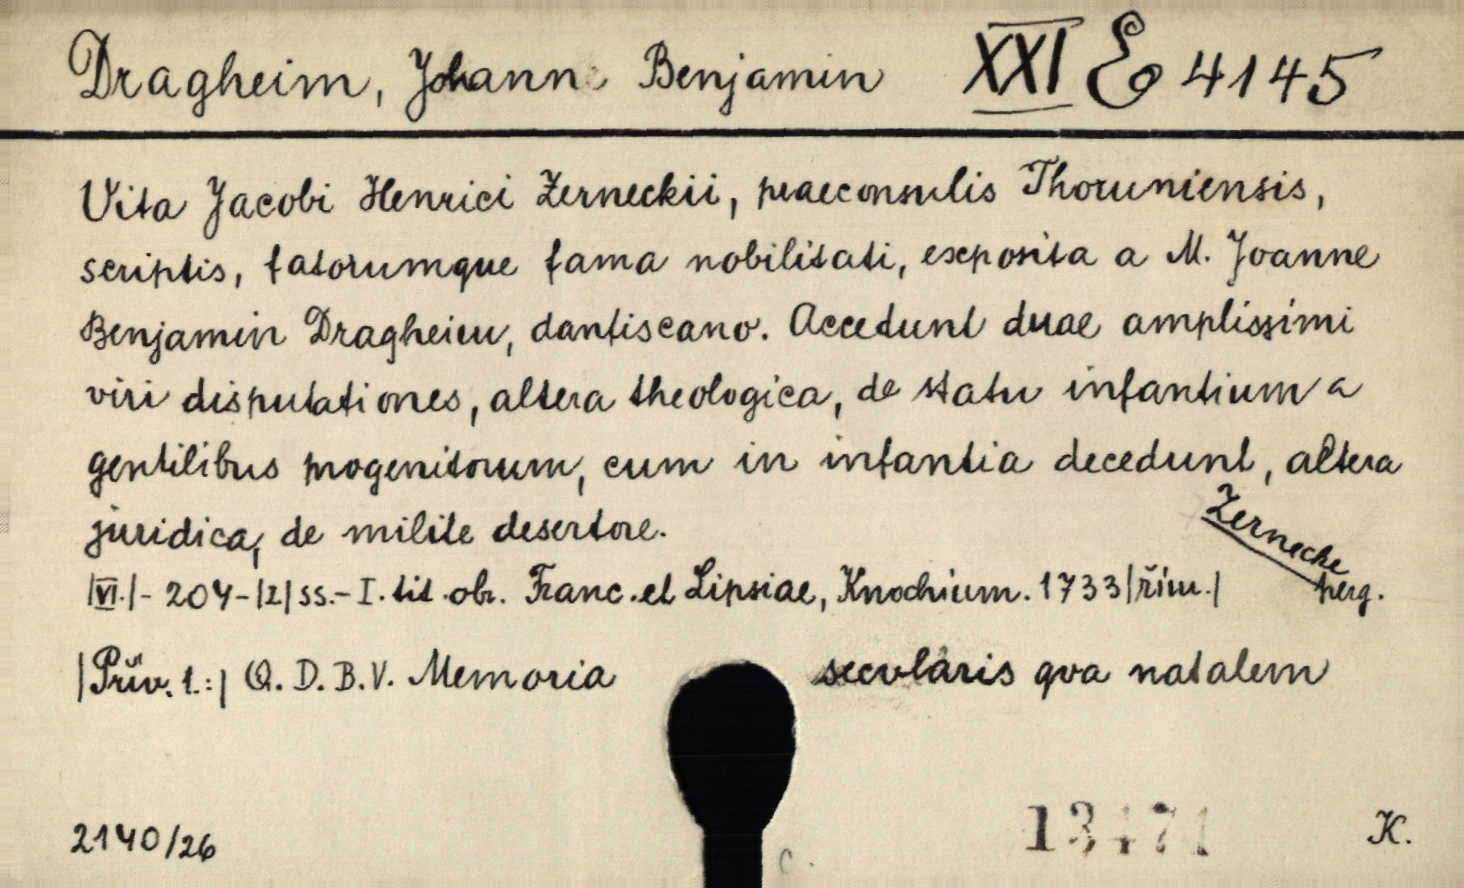 Dragheim, Johann Benjamin XXI E 4145
Vita Jacobi Henrici Zerneckii, praeconsulis Thoruniensis,
scriptis, fatorumque fama nobilitati, exposita a M. Joanne
Benjamin Dragheim, dantiscano. Accedunt duae amplissimi
viri disputationes, altera theologica, de statu infantium a
gentilibus progenitorum, cum in infantia decedunt, altera
juridica, de milite desertore.
Zernecke
|VI.|- 204-|2| ss.- I. tit. obr. Franc. et Lipsiae, Knochium. 1733 |řím.| perg.
|Přív. 1.:| Q. D. B. V. Memoria secvlaris qva natalem
2140/26 13471 K.
c.